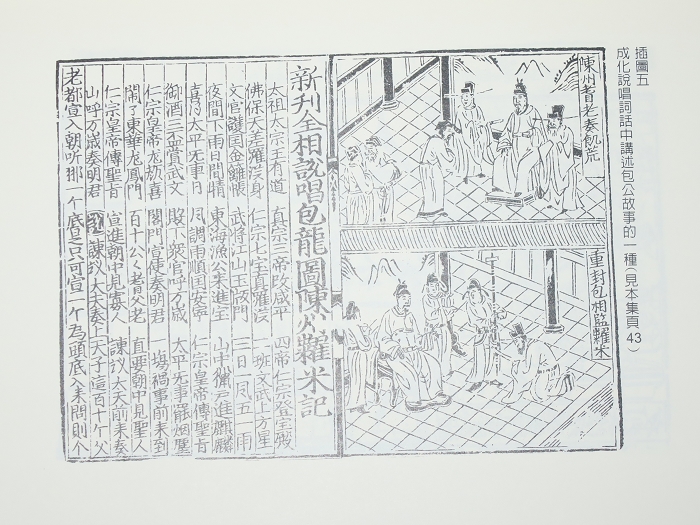 插圖五
成化說唱詞話中講述包公故事的一種(見本集頁43)
陳州耆老奏飢荒
重封包相監糶米
新刊全相說唱包龍圖陳州糶米記
太祖太宗王有道 真宗三帝改咸平 四帝仁宗登宝殿
佛保天差羅汉身 仁宗上宝真羅汉 一班文武上方星
文官護国金 帳 武將江山玉 門 三日一風五一雨
夜間下雨日間晴 東海漁公來進宝 山中獵户進麒麟
喜乃太平无事日 風調雨順国安寧 仁宗皇帝傳聖旨
御酒三平賞武文 賜下衆官呼万歳 太平无事罷烟塵
仁宗皇帝龙欢喜 閣門宣使奏明君 一塲禍事前來到
鬧了東華龙鳳門 百十公公耆父老 直要朝中見聖人
仁宗皇帝傳聖旨 宣進朝中見寡人 諫议大夫前來奏
山呼万歳奏明君 諫议大夫奏上天子這百十个父
老都宣入朝听那一个底是只可宣一个為頭底入來問則个